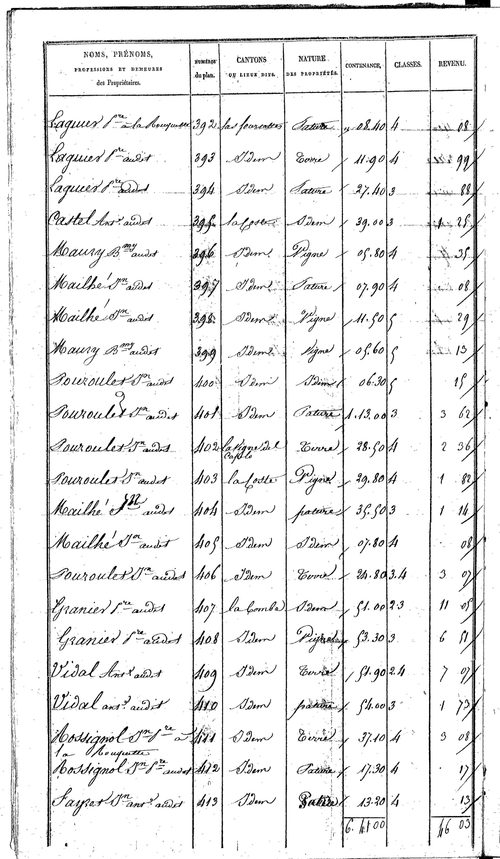 NOMS, PRÉNOMS, PROFESSIONS ET DEMEURES des Propriétaires. NUMÉROS du plan. CANTONS OU LIEUX DITS. NATURE DES PROPRIÉTÉS. CONTENANCE. CLASSES. REVENU.
Laguier Pre à la Rouquette 392 las fourcettes Pature 08.40 4 08
Laguier Pre audit 393 Idem Terre 11.90 4 99
Laguier Pre audit 394 Idem Pature 27.40 3 88
Castel Ante audit 395 la Coste Idem 39.00 3 1 25
Maury Bmy audit 396 Idem Vigne 05.80 4 35
Mailhé Jn audit 397 Idem Pature 07.90 4 08
Mailhé Jn audit 398 Idem Vigne 11.50 5 29
Maury Bmy audit 399 Idem Vigne 05.60 5 13
Pouroulet Jn audit 400 Idem Idem 06.30 5 15
Pouroulet Jn audit 401 Idem Pature 1.13.00 3 3 62
Pouroulet Jn audit 402 la Vigne del 
Terre 28.50 4 2 36
Pouroulet Jn audit 403 la Coste Vigne 29.80 4 1 82
Mailhé Jn audit 404 Idem pature 35.50 3 1 14
Mailhé Jn audit 405 Idem Idem 07.80 4 08
Pouroulet Jn audit 406 Idem Terre 24.80 3.4 3 07
Granier Pre audit 407 la Comba Idem 51.00 2 3 11 05
Granier Pre audit 408 Idem 53.30 3 6 51
Vidal Ante audit 409 Idem Terre 51.90 2.4 7 07
Vidal ante audit 410 Idem pature 54.00 3 1 73
Rossignol Jn Pre à 411 Idem Terre 37.10 4 3 08
la Rouquette
Rossignol Jn Pre audit 412 Idem Pature 17.30 4 17
Fayet Jn ante audit 413 Idem Pature 13.20 4 13
6.41.00 46 03